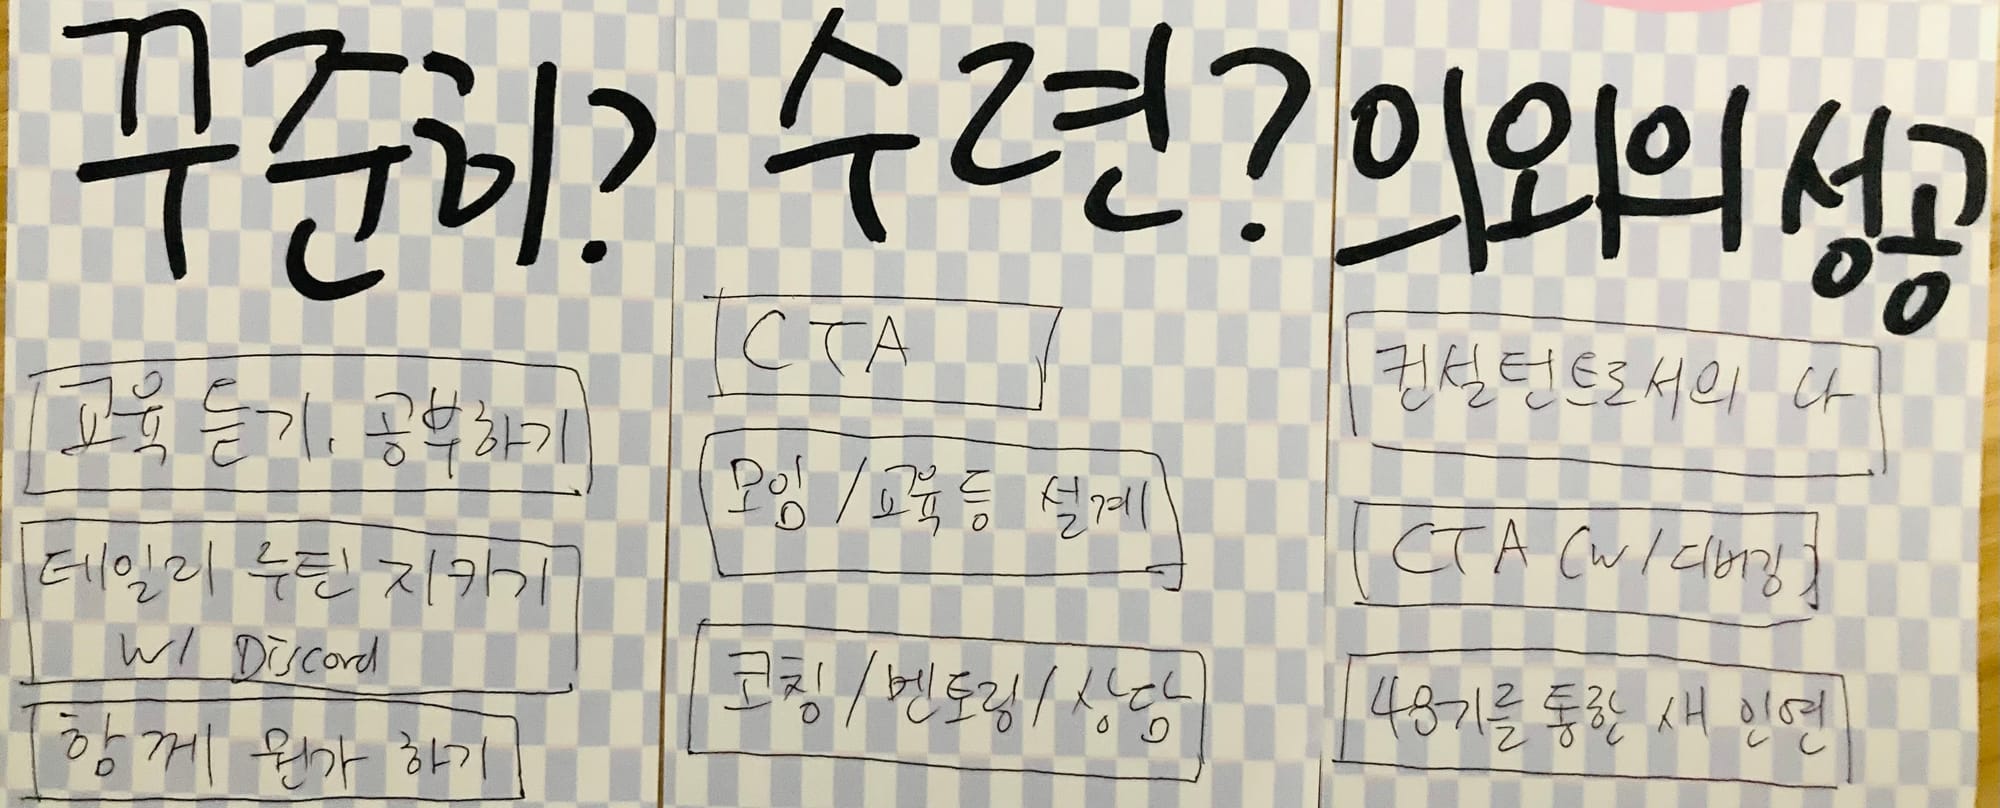 꾸준히?
교육 듣기, 공부하기
데일리 루틴 지키기
w/ Discord
함께 뭔가 하기
수련?
CTA
모임/교육 등 설계
코칭/멘토링/상담
의외의 성공
컨설턴트로서의 나
CTA (w/디버깅)
48기를 통한 새 인연